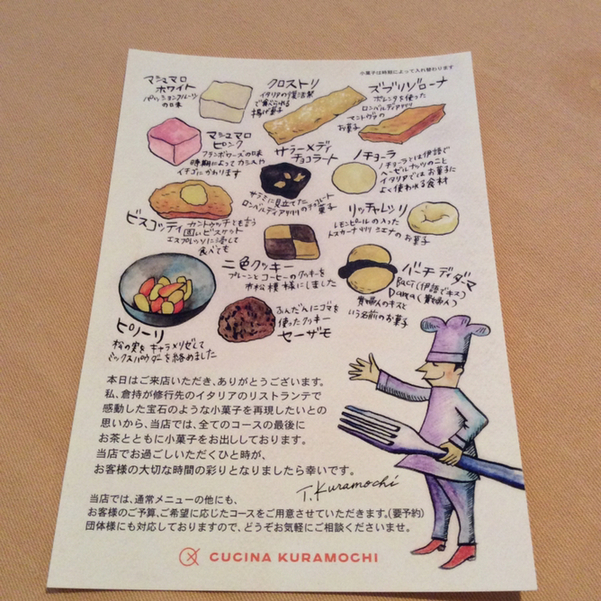 ※菓子は時期によって入れ替わります
マシュマロ
ホワイト
パッションフルーツ
の味
クロストリ
イタリアの復活祭
で食べられる
揚げ菓子
ズブリゾローナ
ポレンタを使った
ロンバルディア州
マントヴァの
お菓子
マシュマロ
ピンク
フランボワーズの味
時期によってカシスや
イチゴにかわります
サラーメディ
チョコラート
サラミに見立てた
ロンバルディア州のチョコレート
菓子
ノチョーラ
ノチョーラとは伊語で
ヘーゼルナッツのこと
イタリアではお菓子に
よく使われる食材
ビスコッティ
カントゥッチとも言う
固いビスケット
エスプレッソに浸しても
食べても
リッチャレリ
レモンピールの入った
トスカーナ州シエナのお菓子
二色クッキー
プレーンとコーヒーのクッキーを
市松模様にしました
バーチディダーマ
Baci(伊語でキス)
Dama(貴婦人)
貴婦人のキスと
いう名前のお菓子
ピリーリ
松の実をキャラメリゼして
ミックスパウダーを絡めました
ふんだんにゴマを
使ったクッキー
セーザモ
本日はご来店いただき、ありがとうございます。
私、倉持が修行先のイタリアのリストランテで
感動した宝石のような小菓子を再現したいとの
思いから、当店では、全てのコースの最後に
お茶とともに小菓子をお出ししております。
当店でお過ごしいただくひと時が、
お客様の大切な時間の彩りとなりましたら幸いです。
T.Kuramochi
当店では、通常メニューの他にも、
お客様のご予算、ご希望に応じたコースをご用意させていただきます。(要予約)
団体様にも対応しておりますので、どうぞお気軽にご相談くださいませ。
CUCINA KURAMOCHI